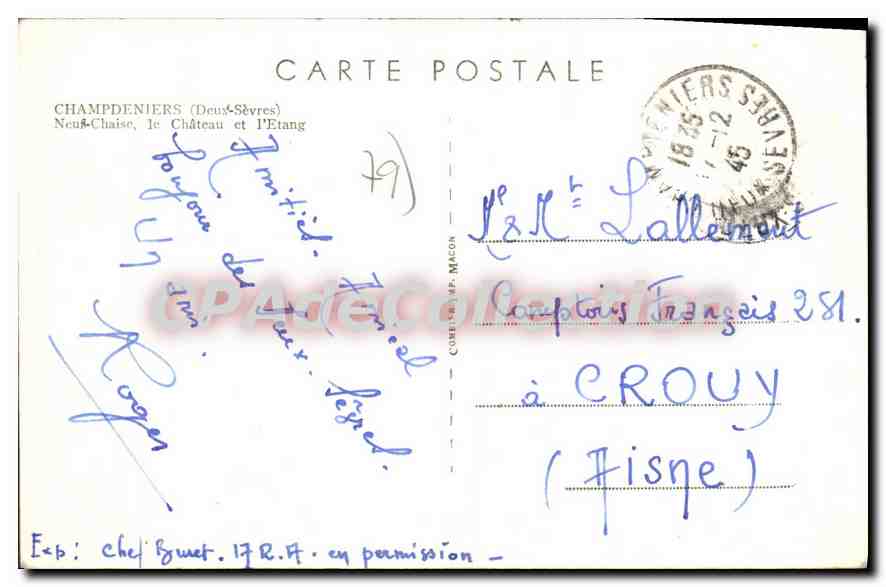 CARTE POSTALE
CHAMPDENIERS (Deux-Sèvres)
Neuf-Chaise, le Château et l'Etang
79)
Amitiés. Amical
toujours des Deux. Sèvres.
Un ami.
Roger
COMBIER IMP. MACON
CHAMPDENIERS DEUX SEVRES
18 35
12
45
Mr & Mr Lallemant
Comptoirs Français 281.
à CROUY
(Aisne)
Exp: chef Buret. 17 R.A. en permission —
CPAdeCollection